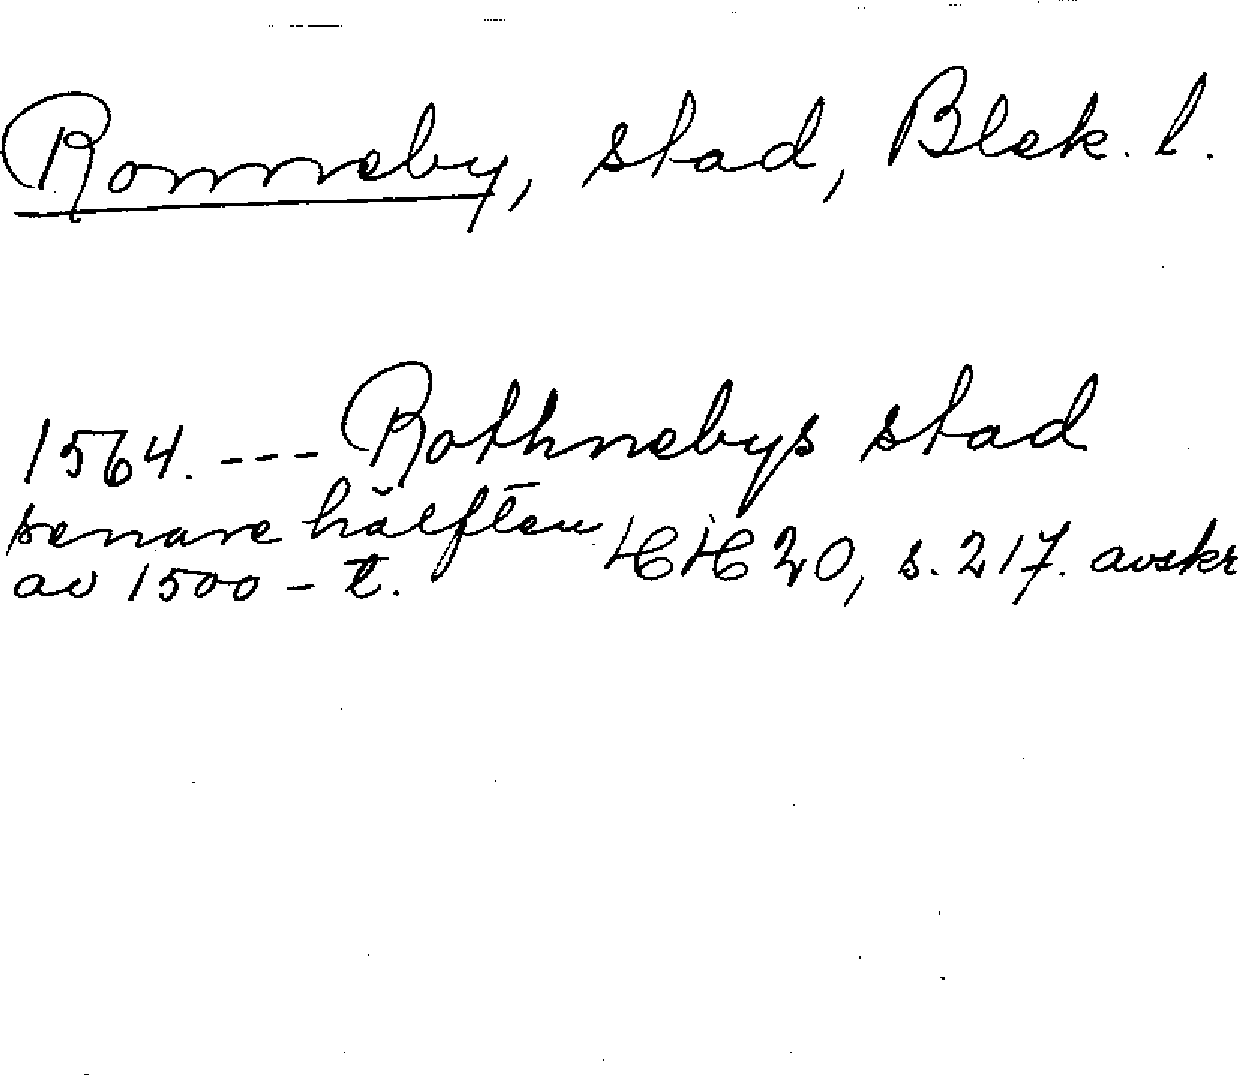 Ronneby, stad, Blek. l.
1564. --- Rothnebys stad
senare hälften HH 20, s. 217. avskr
av 1500-t.